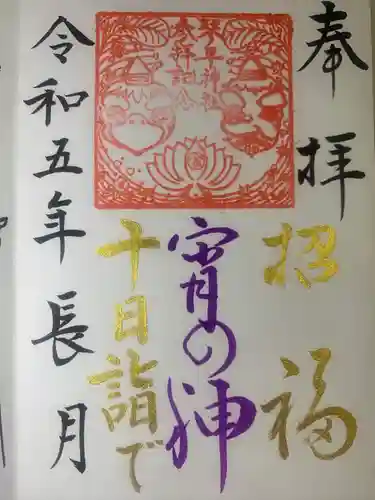 奉拝
招福
宵の神
十日詣で
令和五年長月
参拝記念